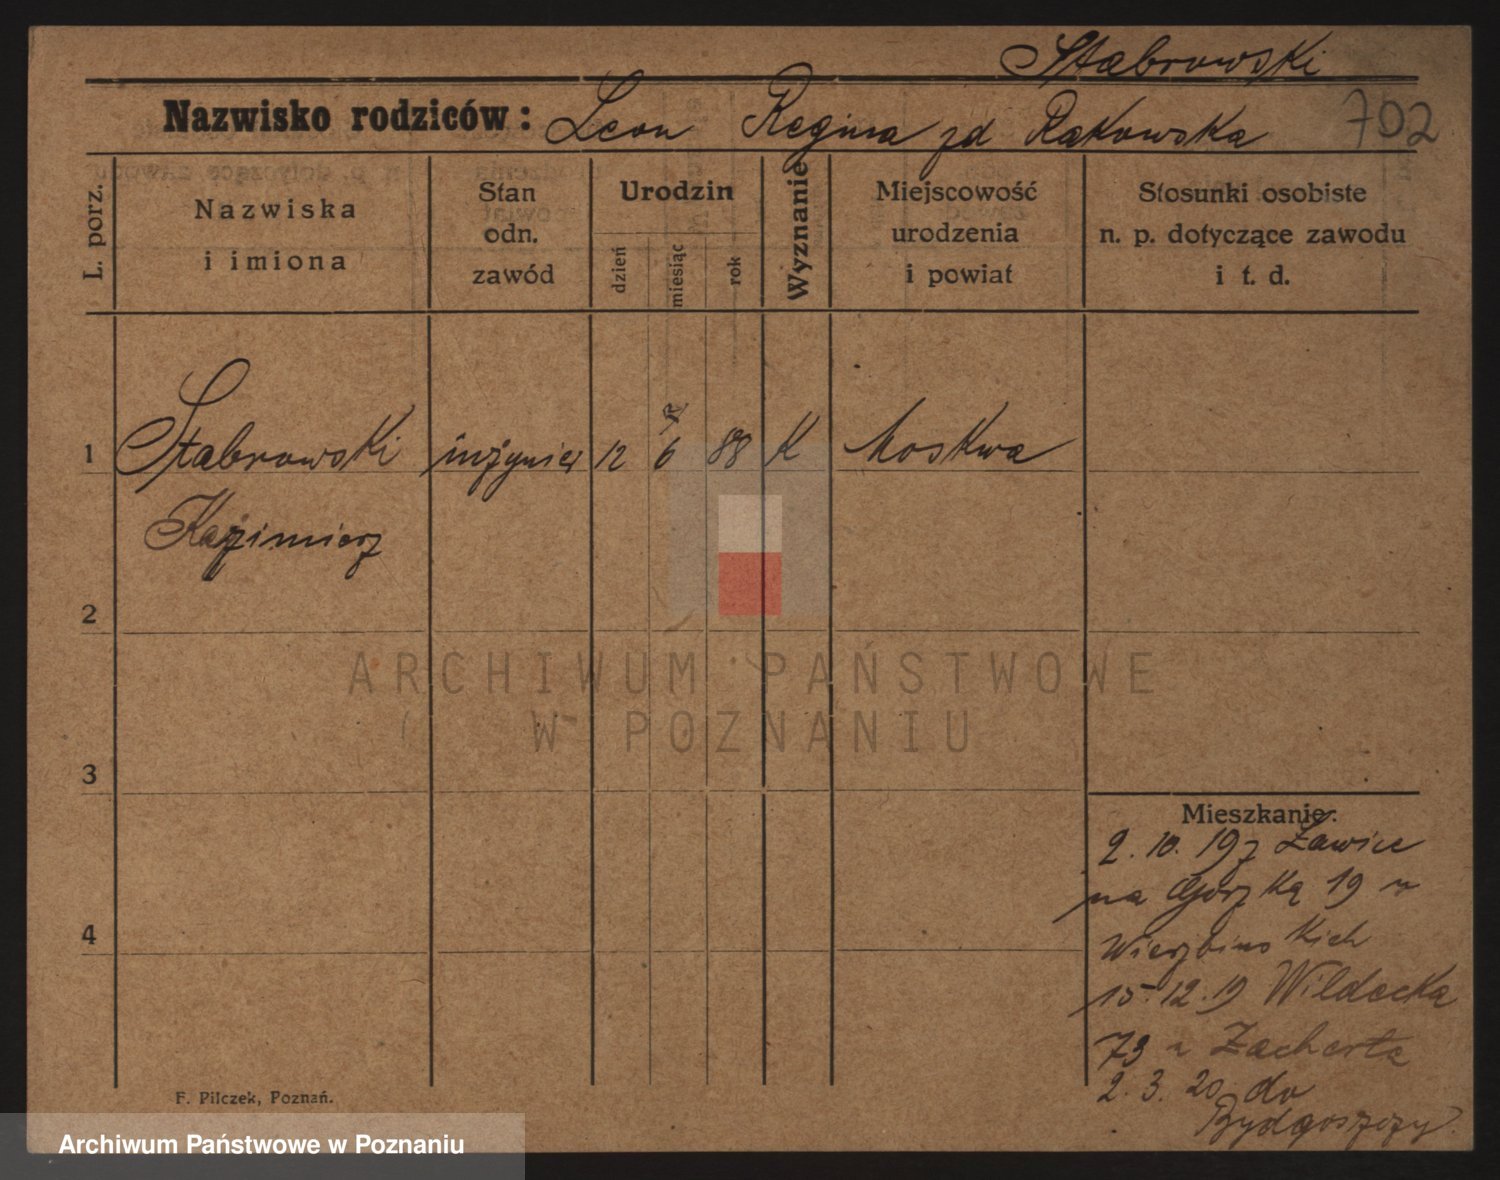 Stabrowski
Nazwisko rodziców: Leon Regina zd Rakowska 702
L. porz.
Nazwiska
i imiona
Stan
odn.
zawód
Urodzin
dzień
miesiąc
rok
Wyznanie
Miejscowość
urodzenia
i powiat
Stosunki osobiste
n. p. dotyczące zawodu
i t. d.
1 Stabrowski inżynier 12 6 88 K Moskwa
Kazimierz
2
ARCHIWUM PAŃSTWOWE
W POZNANIU
3
Mieszkanie:
2. 10. 19 z Żawice
na Górzką 19 u
4
Wierzbinskich
15.12.19 Wildecka
73 u Zacherta
2. 3. 20 do
Bydgoszczy.
F. Pilczek, Poznań.
Archiwum Państwowe w Poznaniu